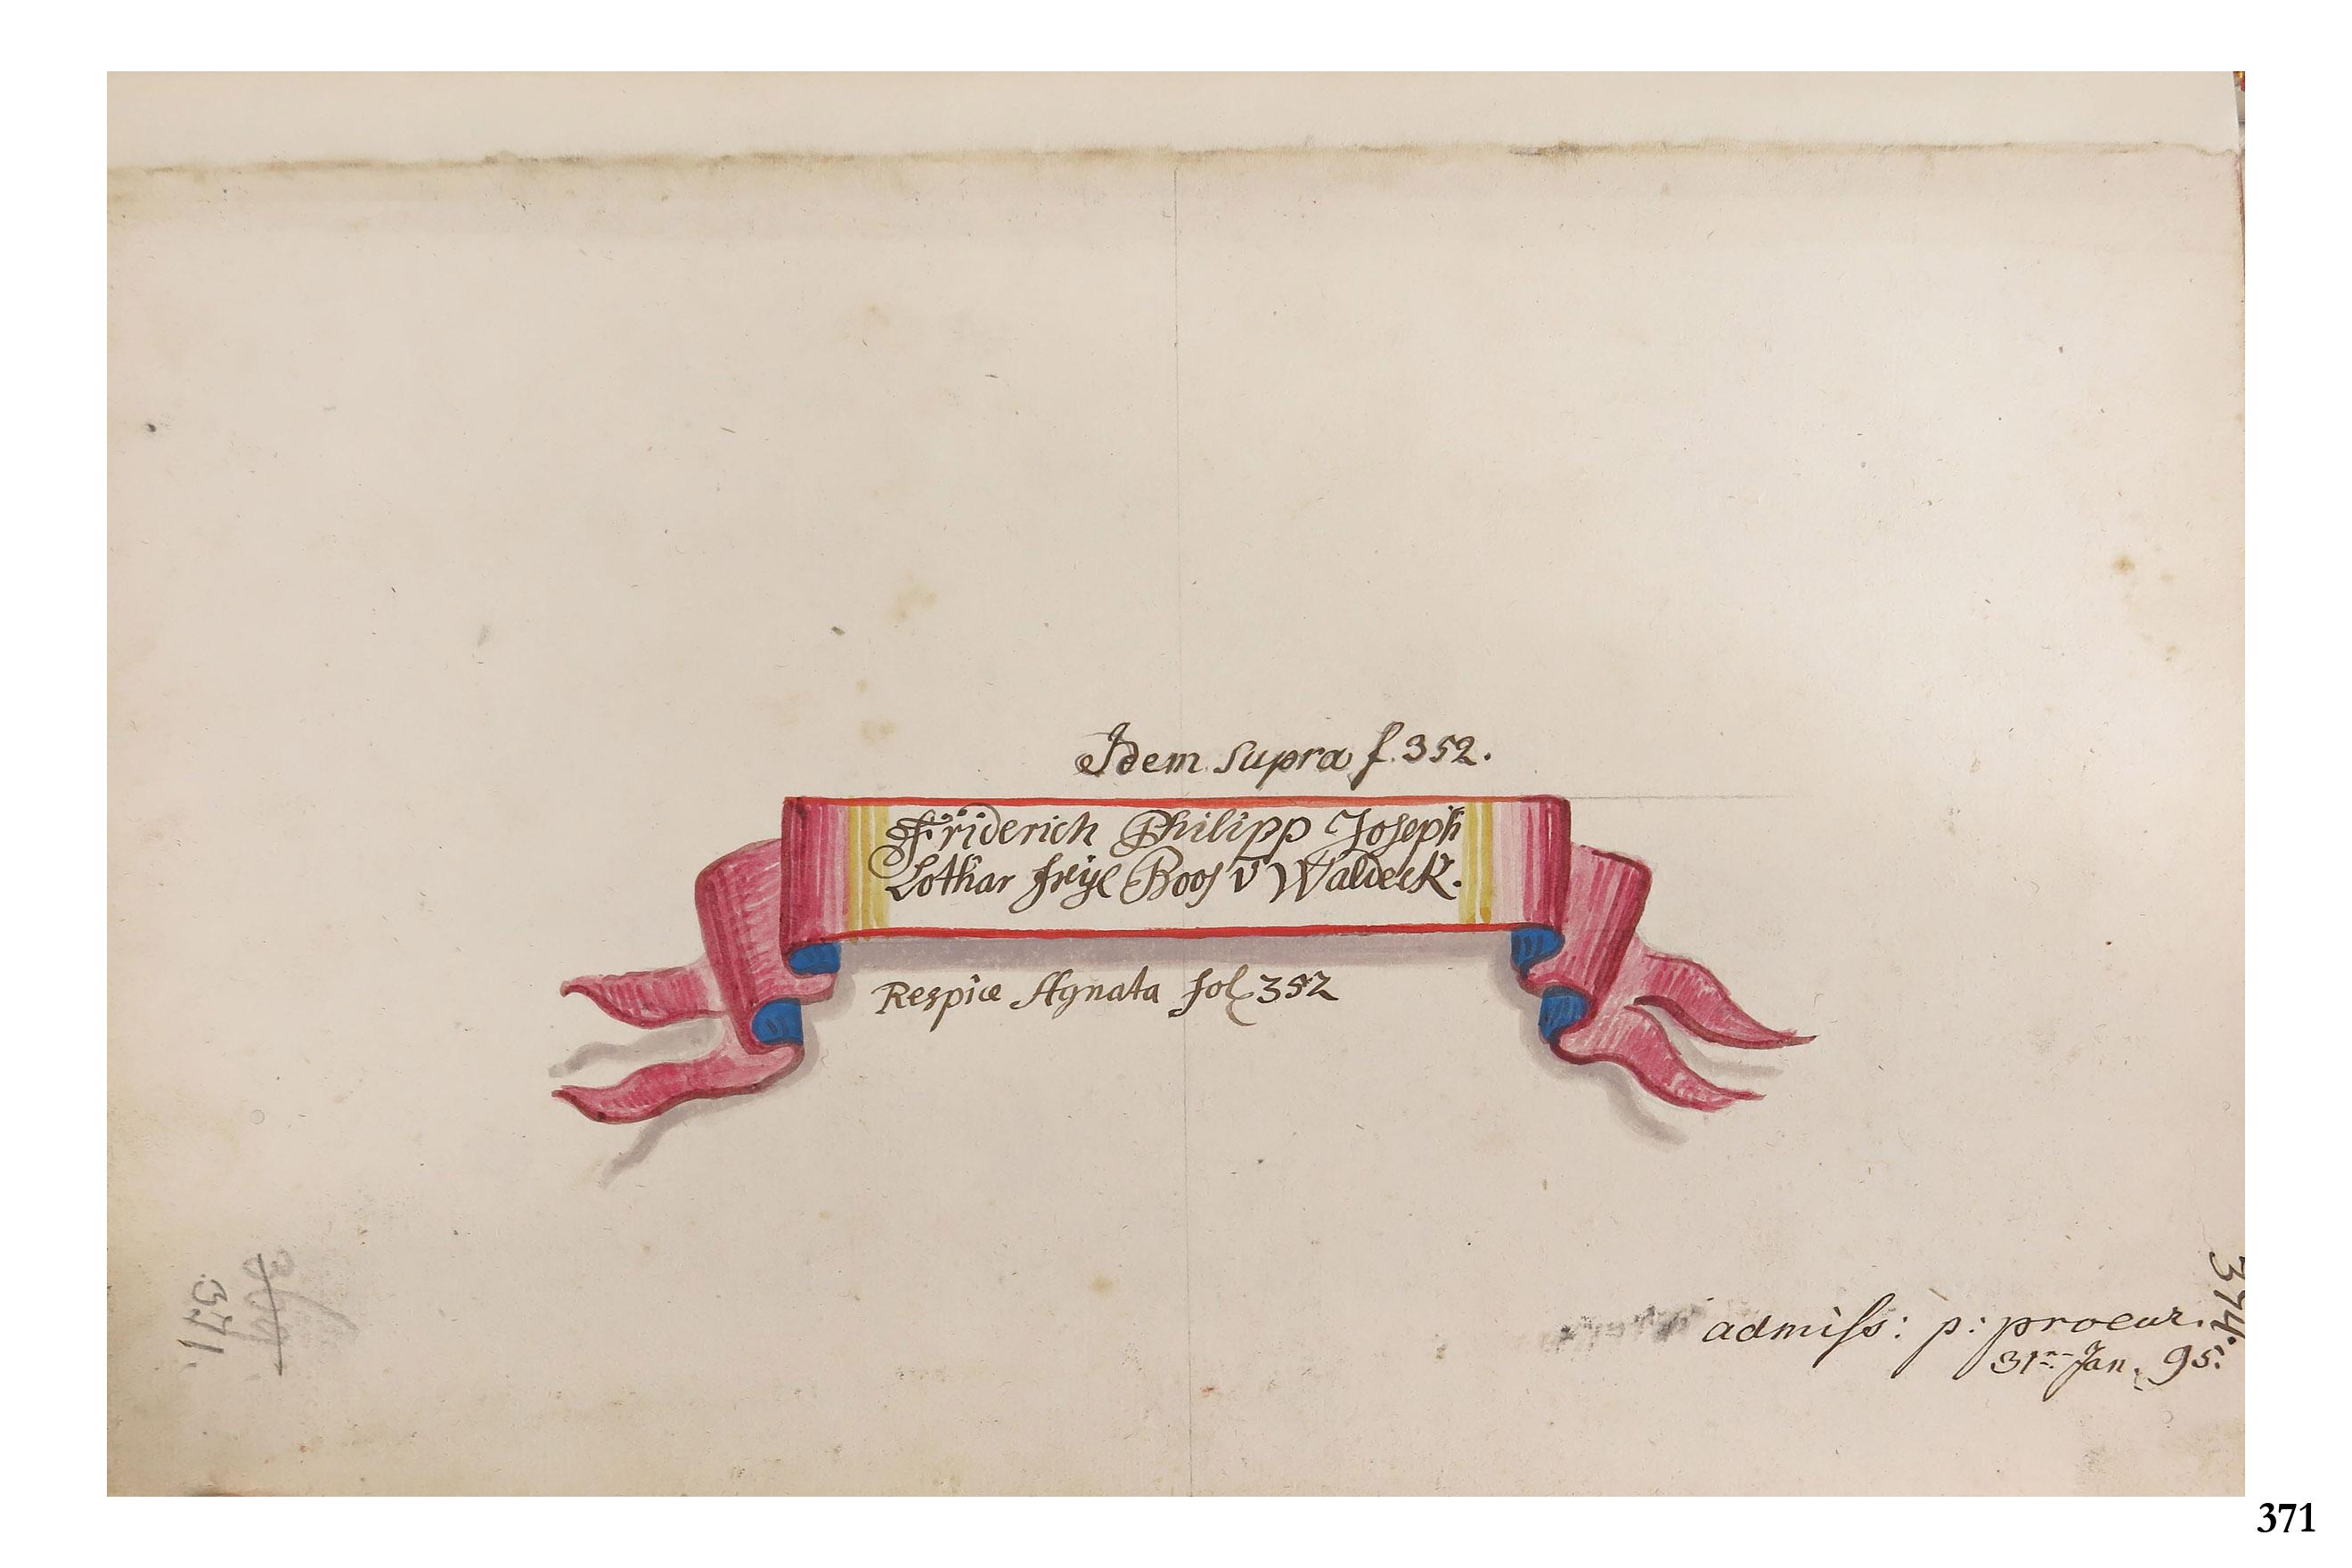 Idem supra f. 352.
Friderich Philipp Joseph
Lothar freÿe Boos v Waldeck.
Respice Agnata fol 352
admiss: p: procur.
31ma Jan. 95.
371.
374.
371